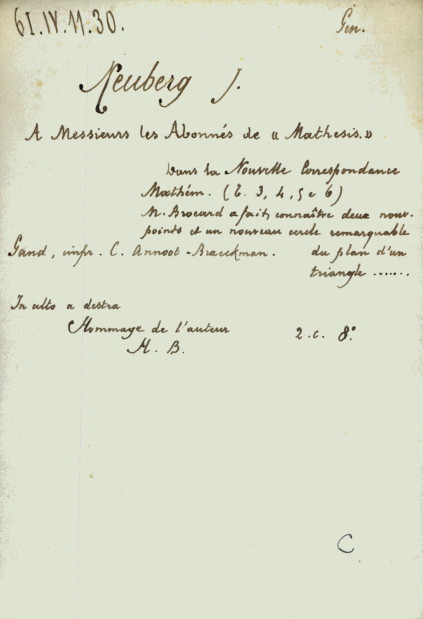 61.IV.11.30.
Gen.
Neuberg J.
A Messieurs les Abonnés de « Mathesis. »
Dans la Nouvelle Correspondance
Mathém. (t. 3, 4, 5 e 6)
M. Brocard a fait connaître deux nouv.
points et un nouveau cercle remarquable
Gand, impr. C. Annoot-Braeckman. du plan d'un
triangle .......
In alto a destra
Hommage de l'auteur 2.c. 8.°
H. B.
C